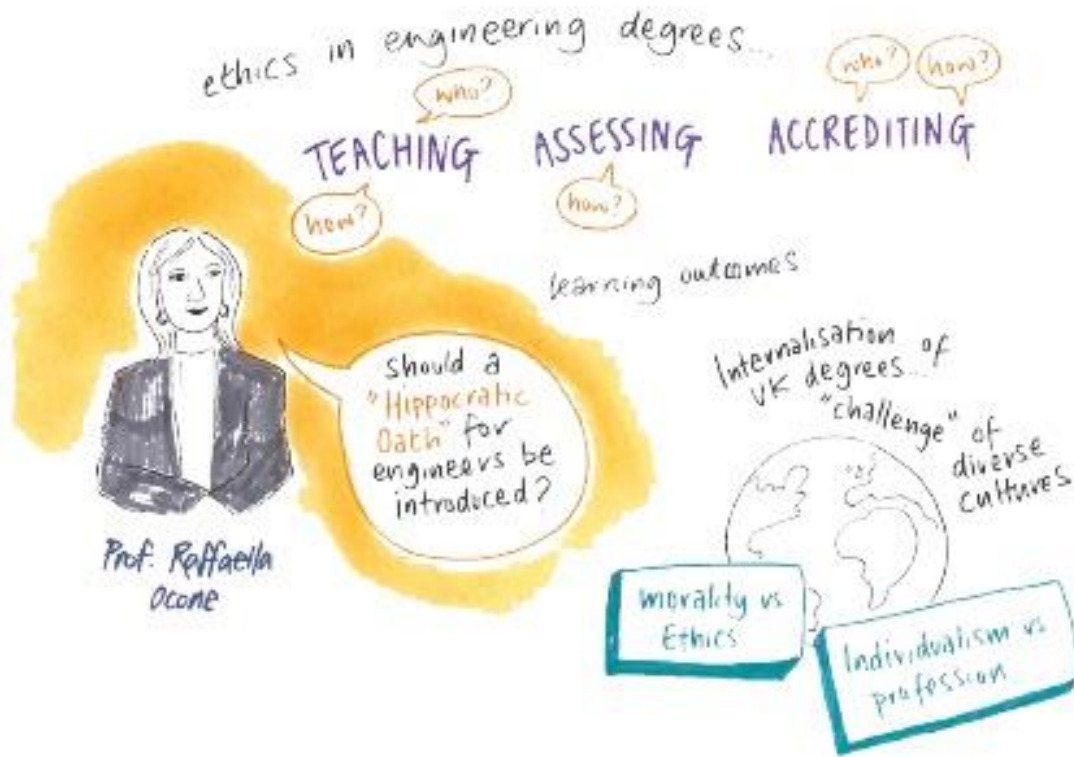 ethics in engineering degrees...
who?
who? how?
TEACHING ASSESSING ACCREDITING
how?
how?
learning outcomes
should a
"Hippocratic
Oath" for
engineers be
introduced?
Prof. Raffaella
Ocone
Internalisation of
UK degrees...
"challenge" of
diverse
cultures
morality vs
Ethics
Individualism vs
profession